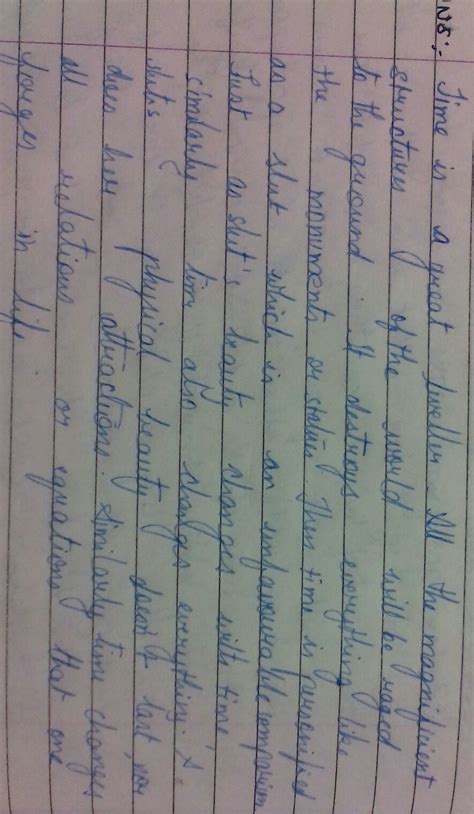 NS:- Time is a great leveller. All the magnificient
structures of the world will be razed
to the ground. It destroys everything like
the monuments or statues. Then time is personified
as a slut which is an unfavourable comparison
Just as slut's beauty changes with time
similarly time also changes everything. A
sluts physical beauty doesn't last, nor
does her attractions. Similarly time changes
all relations or equations that one
forges in life.